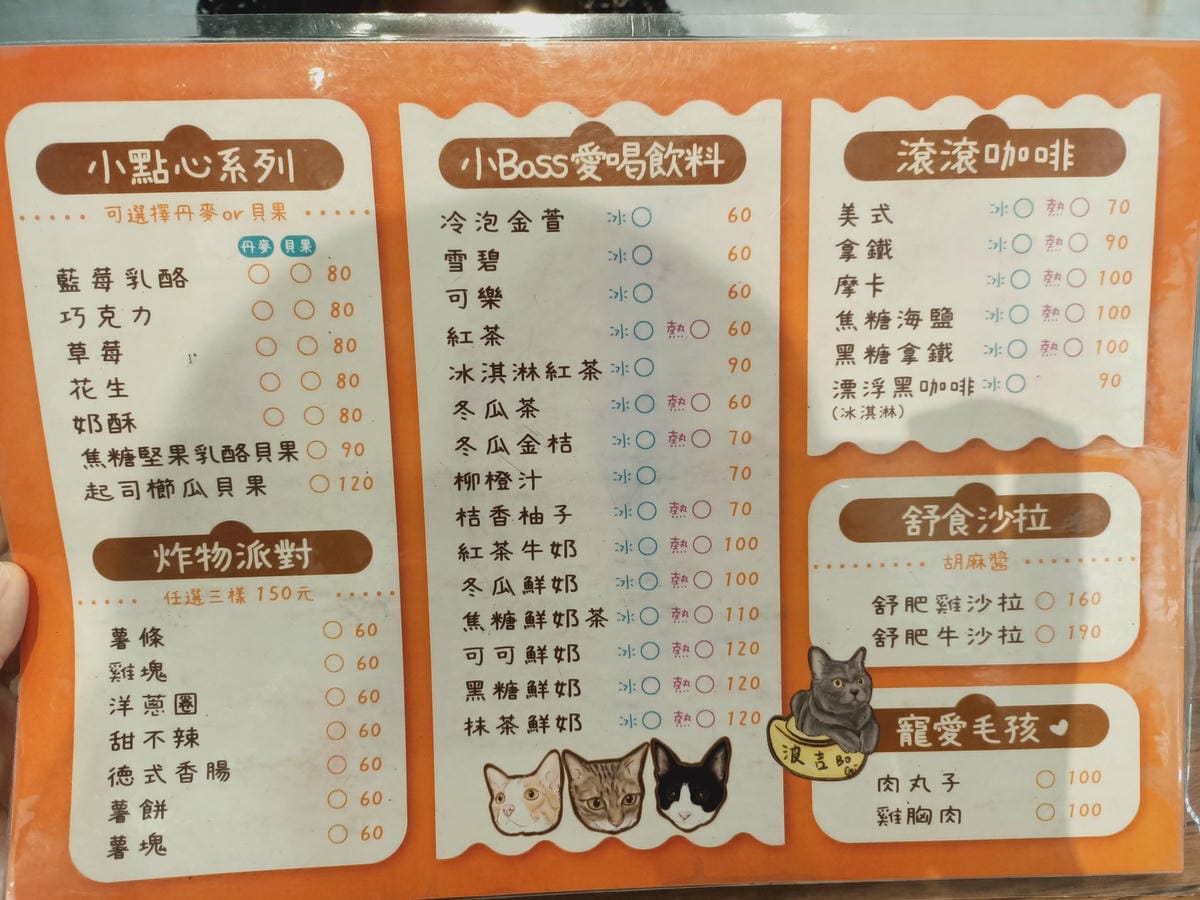 小點心系列
可選擇丹麥or貝果
丹麥 貝果
藍莓乳酪 80
巧克力 80
草莓 80
花生 80
奶酥 80
焦糖堅果乳酪貝果 90
起司櫛瓜貝果 120
炸物派對
任選三樣150元
薯條 60
雞塊 60
洋蔥圈 60
甜不辣 60
德式香腸 60
薯餅 60
薯塊 60
小Boss愛喝飲料
冷泡金萱 冰 60
雪碧 冰 60
可樂 冰 60
紅茶 冰 熱 60
冰淇淋紅茶 冰 90
冬瓜茶 冰 熱 60
冬瓜金桔 冰 熱 70
柳橙汁 冰 70
桔香柚子 冰 熱 70
紅茶牛奶 冰 熱 100
冬瓜鮮奶 冰 熱 100
焦糖鮮奶茶 冰 熱 110
可可鮮奶 冰 熱 120
黑糖鮮奶 冰 熱 120
抹茶鮮奶 冰 熱 120
滾滾咖啡
美式 冰 熱 70
拿鐵 冰 熱 90
摩卡 冰 熱 100
焦糖海鹽 冰 熱 100
黑糖拿鐵 冰 熱 100
漂浮黑咖啡 冰 90
(冰淇淋)
舒食沙拉
胡麻醬
舒肥雞沙拉 160
舒肥牛沙拉 190
波吉Bo
Gi
寵愛毛孩
肉丸子 100
雞胸肉 100